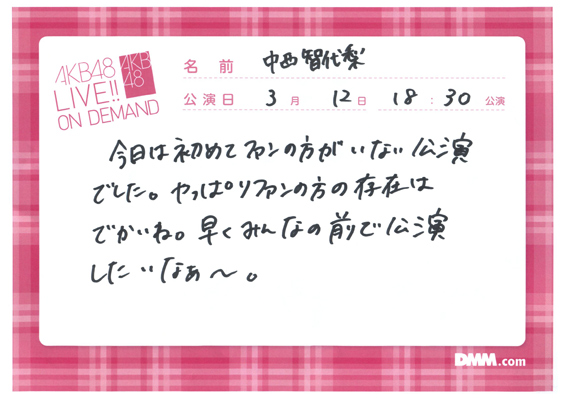 AKB48
LIVE!!
ON DEMAND
AKB
48
名前 中西智代梨
公演日 3月 12日 18:30 公演
今日は初めてファンの方がいない公演
でした。やっぱりファンの方の存在は
でかいね。早くみんなの前で公演
したいなぁ〜。
DMM.com